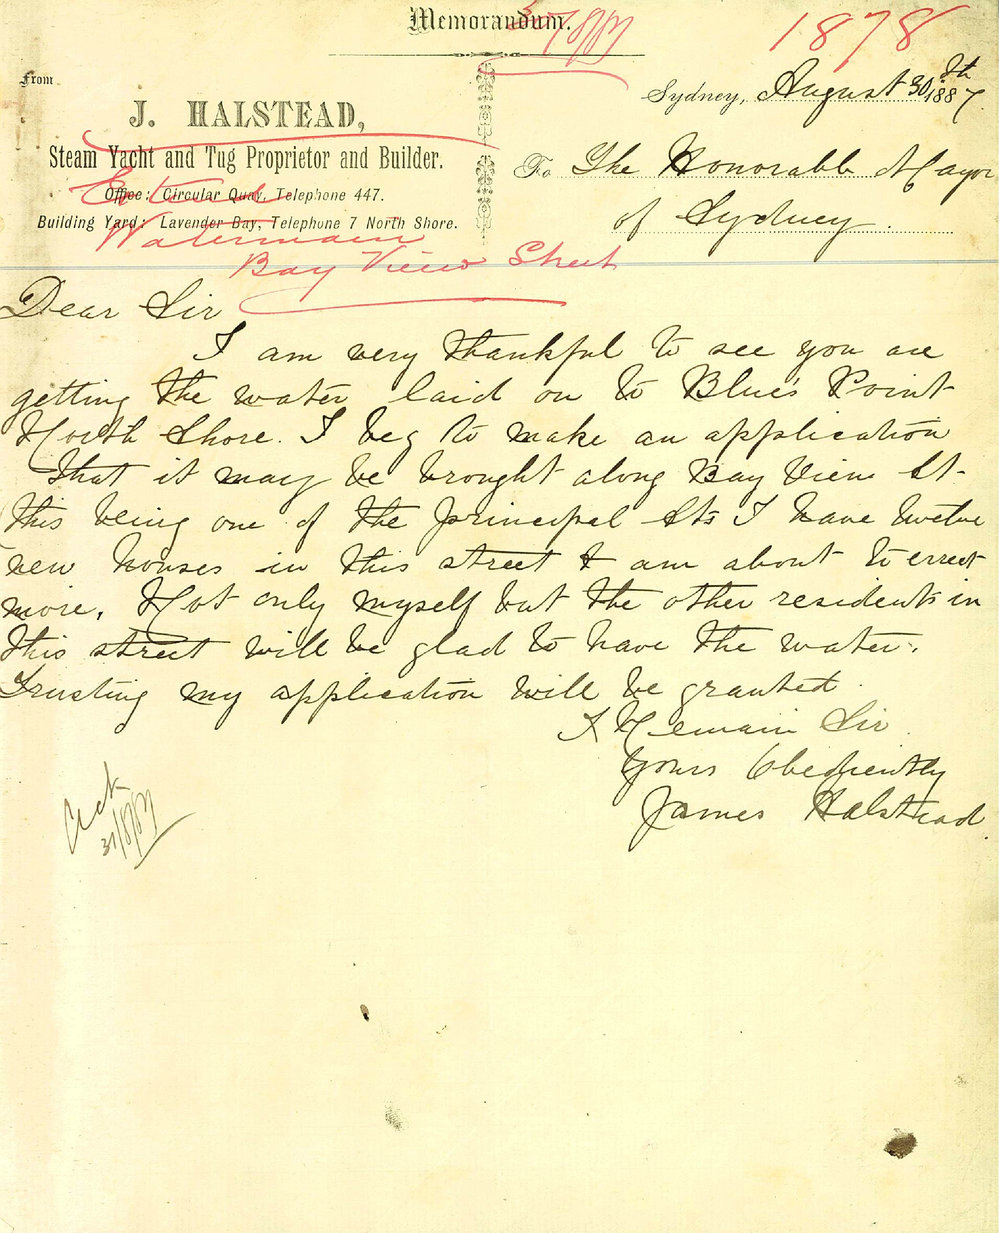 Memorandum.
31/8/87
1878
From
J. HALSTEAD,
Steam Yacht and Tug Proprietor and Builder.
Office: Circular Quay, Telephone 447.
Building Yard: Lavender Bay, Telephone 7 North Shore.
Extend
Watermain
Bay View Street
Sydney, August 30th 1887
To The Honorable Mayor
of Sydney.
Dear Sir
I am very thankful to see you are
getting the water laid on to Blue's Point
North Shore. I beg to make an application
that it may be brought along Bay View St.
this being one of the principal Sts I have twelve
new houses in this street & am about to errect
more. Not only myself but the other residents in
this street will be glad to have the water.
Trusting my application will be granted.
I Remain Sir
Yours Obediently
James Halstead.
31/8/87